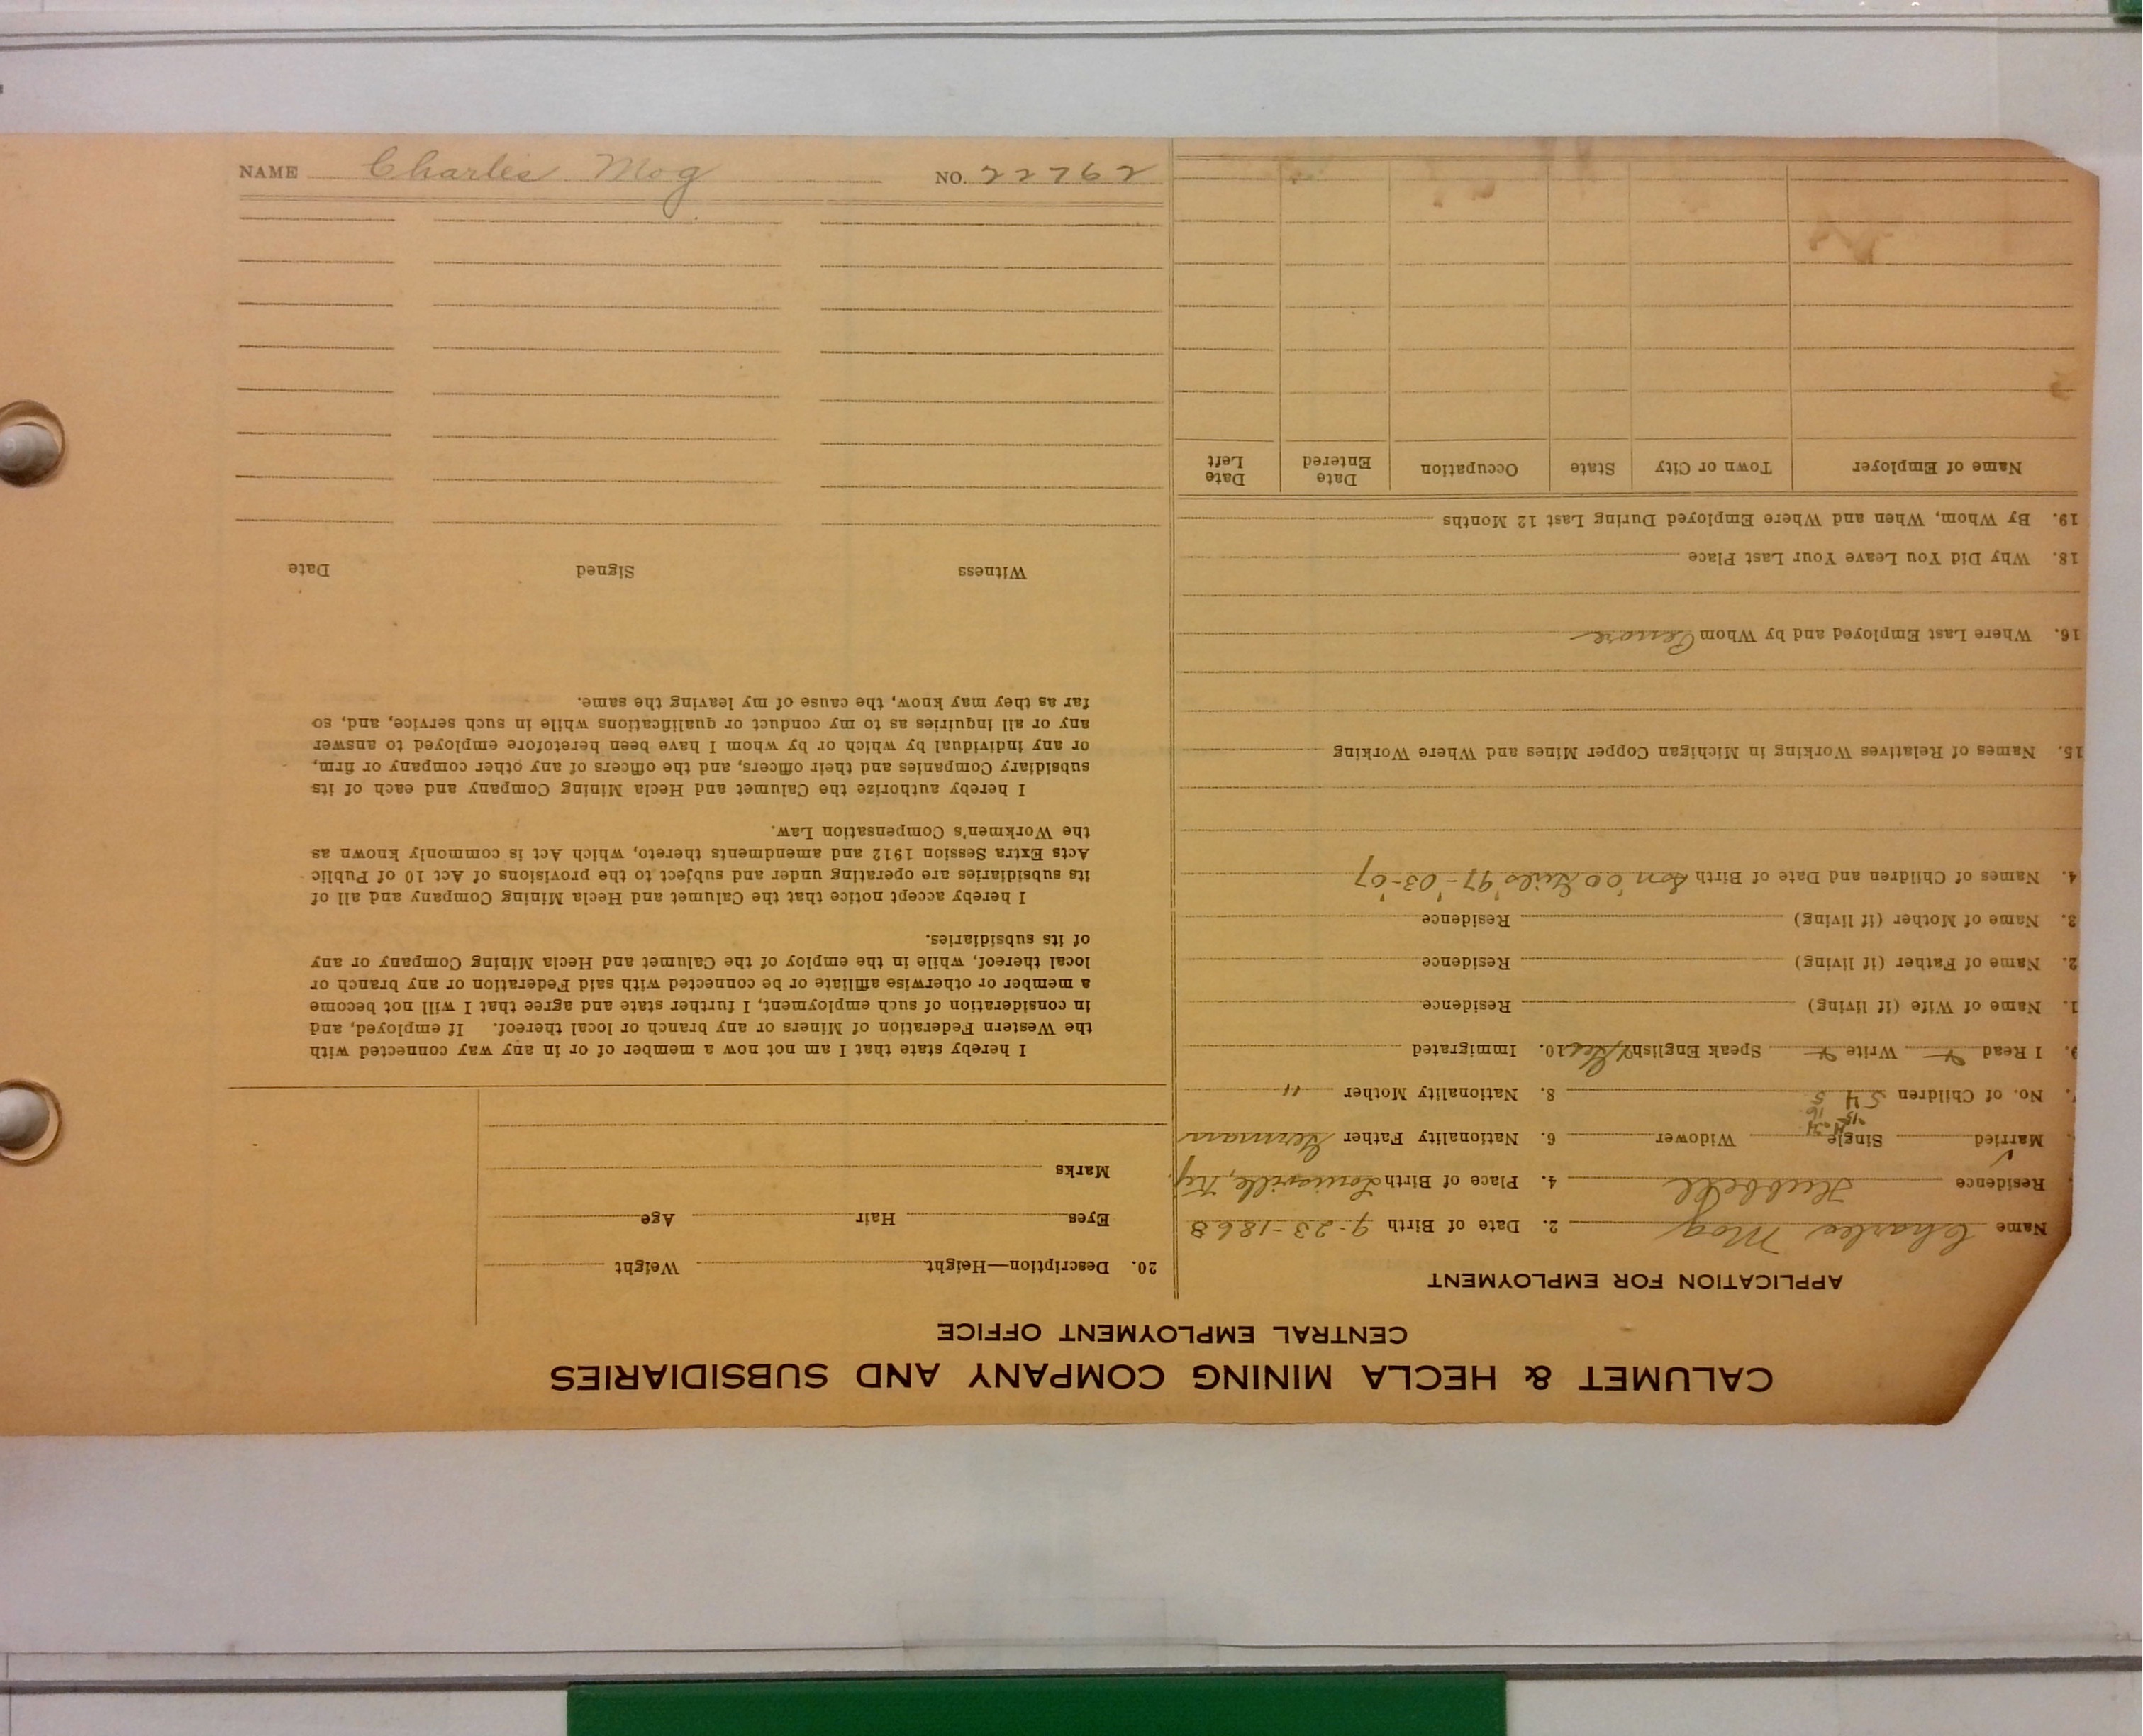 NAME Charles Mog NO. 22762
CALUMET & HECLA MINING COMPANY AND SUBSIDIARIES
CENTRAL EMPLOYMENT OFFICE
APPLICATION FOR EMPLOYMENT
Name Charles Mog 2. Date of Birth 9-23-1868
Residence Hubbell 4. Place of Birth Louisville, Ky.
Married Single Widower 6. Nationality Father German
No. of Children 8. Nationality Mother "
9. I Read Write Speak English 10. Immigrated
1. Name of Wife (if living) Residence
2. Name of Father (if living) Residence
3. Name of Mother (if living) Residence
4. Names of Children and Date of Birth Son '00 '97-'03-'07
15. Names of Relatives Working in Michigan Copper Mines and Where Working
16. Where Last Employed and by Whom
18. Why Did You Leave Your Last Place
19. By Whom, When and Where Employed During Last 12 Months
Name of Employer Town or City State Occupation Date Entered Date Left
20. Description—Height Weight
Eyes Hair Age
Marks
I hereby state that I am not now a member of or in any way connected with
the Western Federation of Miners or any branch or local thereof. If employed, and
in consideration of such employment, I further state and agree that I will not become
a member or otherwise affiliate or be connected with said Federation or any branch or
local thereof, while in the employ of the Calumet and Hecla Mining Company or any
of its subsidiaries.
I hereby accept notice that the Calumet and Hecla Mining Company and all of
its subsidiaries are operating under and subject to the provisions of Act 10 of Public
Acts Extra Session 1912 and amendments thereto, which Act is commonly known as
the Workmen's Compensation Law.
I hereby authorize the Calumet and Hecla Mining Company and each of its
subsidiary Companies and their officers, and the officers of any other company or firm,
or any individual by which or by whom I have been heretofore employed to answer
any or all inquiries as to my conduct or qualifications while in such service, and, so
far as they may know, the cause of my leaving the same.
Witness Signed Date